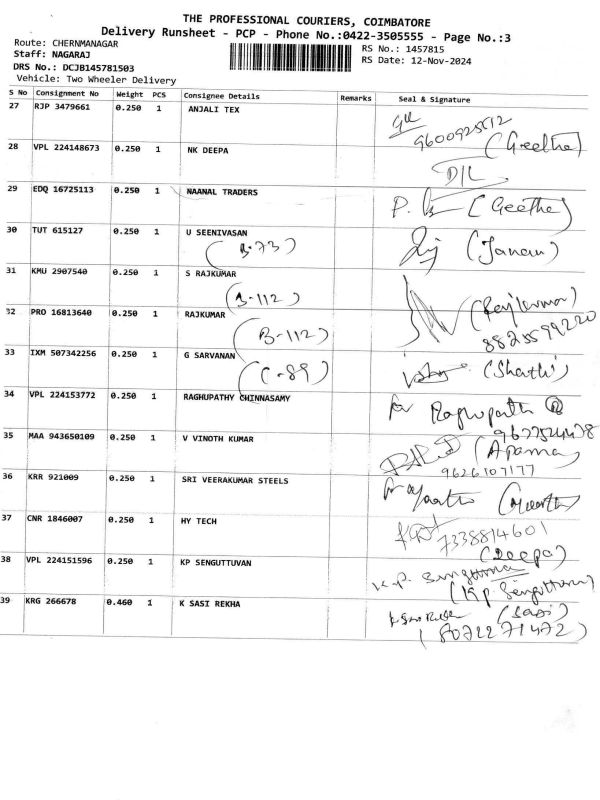 THE PROFESSIONAL COURIERS, COIMBATORE
Delivery Runsheet - PCP - Phone No.:0422-3505555 - Page No.:3
Route: CHERNMANAGAR
RS No.: 1457815
Staff: NAGARAJ
RS Date: 12-Nov-2024
DRS No.: DCJB145781503
Vehicle: Two Wheeler Delivery
S No Consignment No Weight PCS Consignee Details Remarks Seal & Signature
27 RJP 3479661 0.250 1 ANJALI TEX
(Geetha)
28 VPL 224148673 0.250 1 NK DEEPA
D/L
29 EDQ 16725113 0.250 1 NAANAL TRADERS
P. (Geetha)
30 TUT 615127 0.250 1 U SEENIVASAN
(B-73)
31 KMU 2907540 0.250 1 S RAJKUMAR
(B-112)
32 PRO 16813640 0.250 1 RAJKUMAR
(B-112)
33 IXM 507342256 0.250 1 G SARVANAN
(C-89) (Shathi)
34 VPL 224153772 0.250 1 RAGHUPATHY CHINNASAMY
for Raghupathi
35 MAA 943650109 0.250 1 V VINOTH KUMAR
9626107177
36 KRR 921009 0.250 1 SRI VEERAKUMAR STEELS
37 CNR 1846007 0.250 1 HY TECH
7338814601
(Deepa)
38 VPL 224151596 0.250 1 KP SENGUTTUVAN
(K.p. Senguttuvan)
39 KRG 266678 0.460 1 K SASI REKHA
(Sasi)
(8072271472)